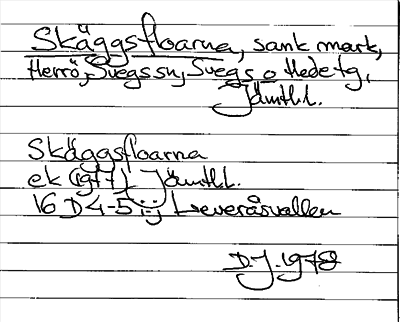 Skäggsfloarna, sank mark,
Herrö, Svegs sn, Svegs o Hede tg,
Jämtl.l.
Skäggsfloarna
ek (1977) Jämtl.l.
16 D 4-5 i-j Leveråsvallen
D.J. 1978